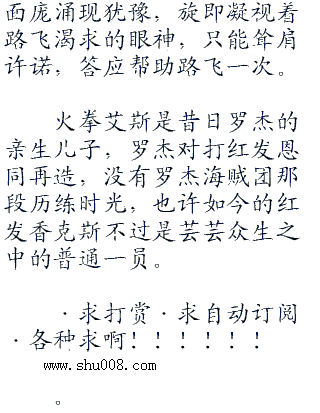 面庞涌现犹豫，旋即凝视着
路飞渴求的眼神，只能耸肩
许诺，答应帮助路飞一次。
火拳艾斯是昔日罗杰的
亲生儿子，罗杰对打红发恩
同再造，没有罗杰海贼团那
段历练时光，也许如今的红
发香克斯不过是芸芸众生之
中的普通一员。
·求打赏·求自动订阅
·各种求啊！！！！！！
www.shu008.com
。